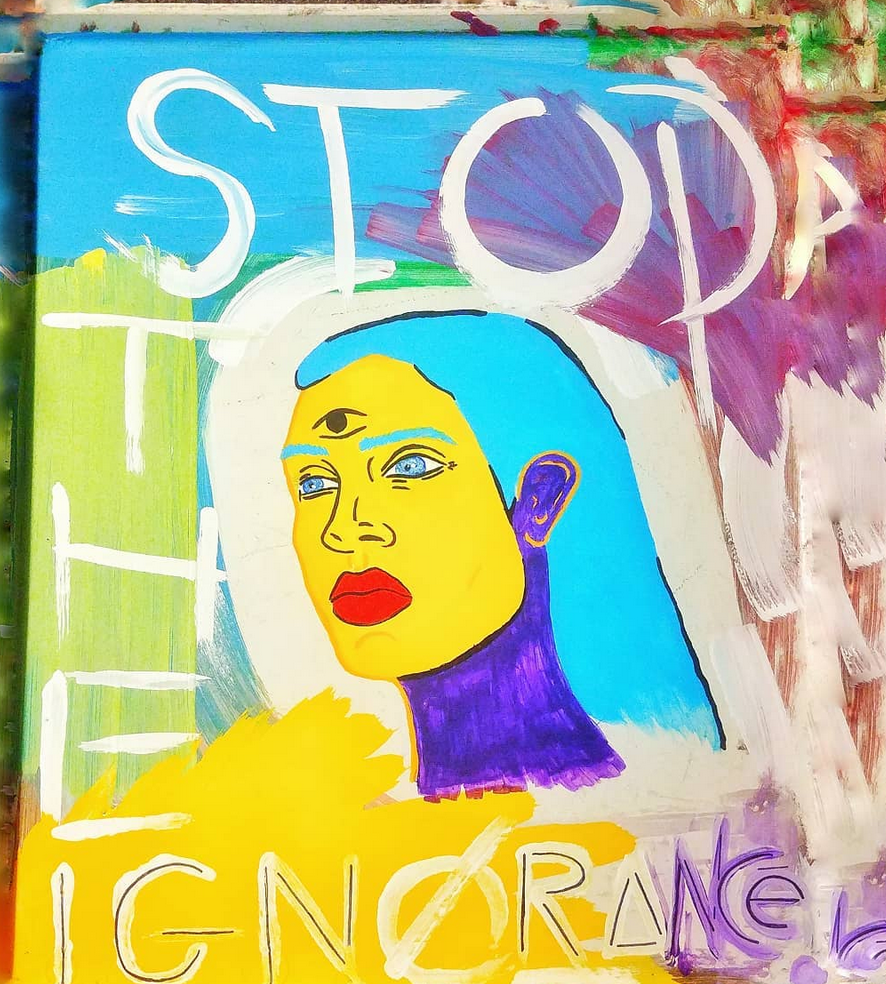 STOP
THE
IGNØRANCE